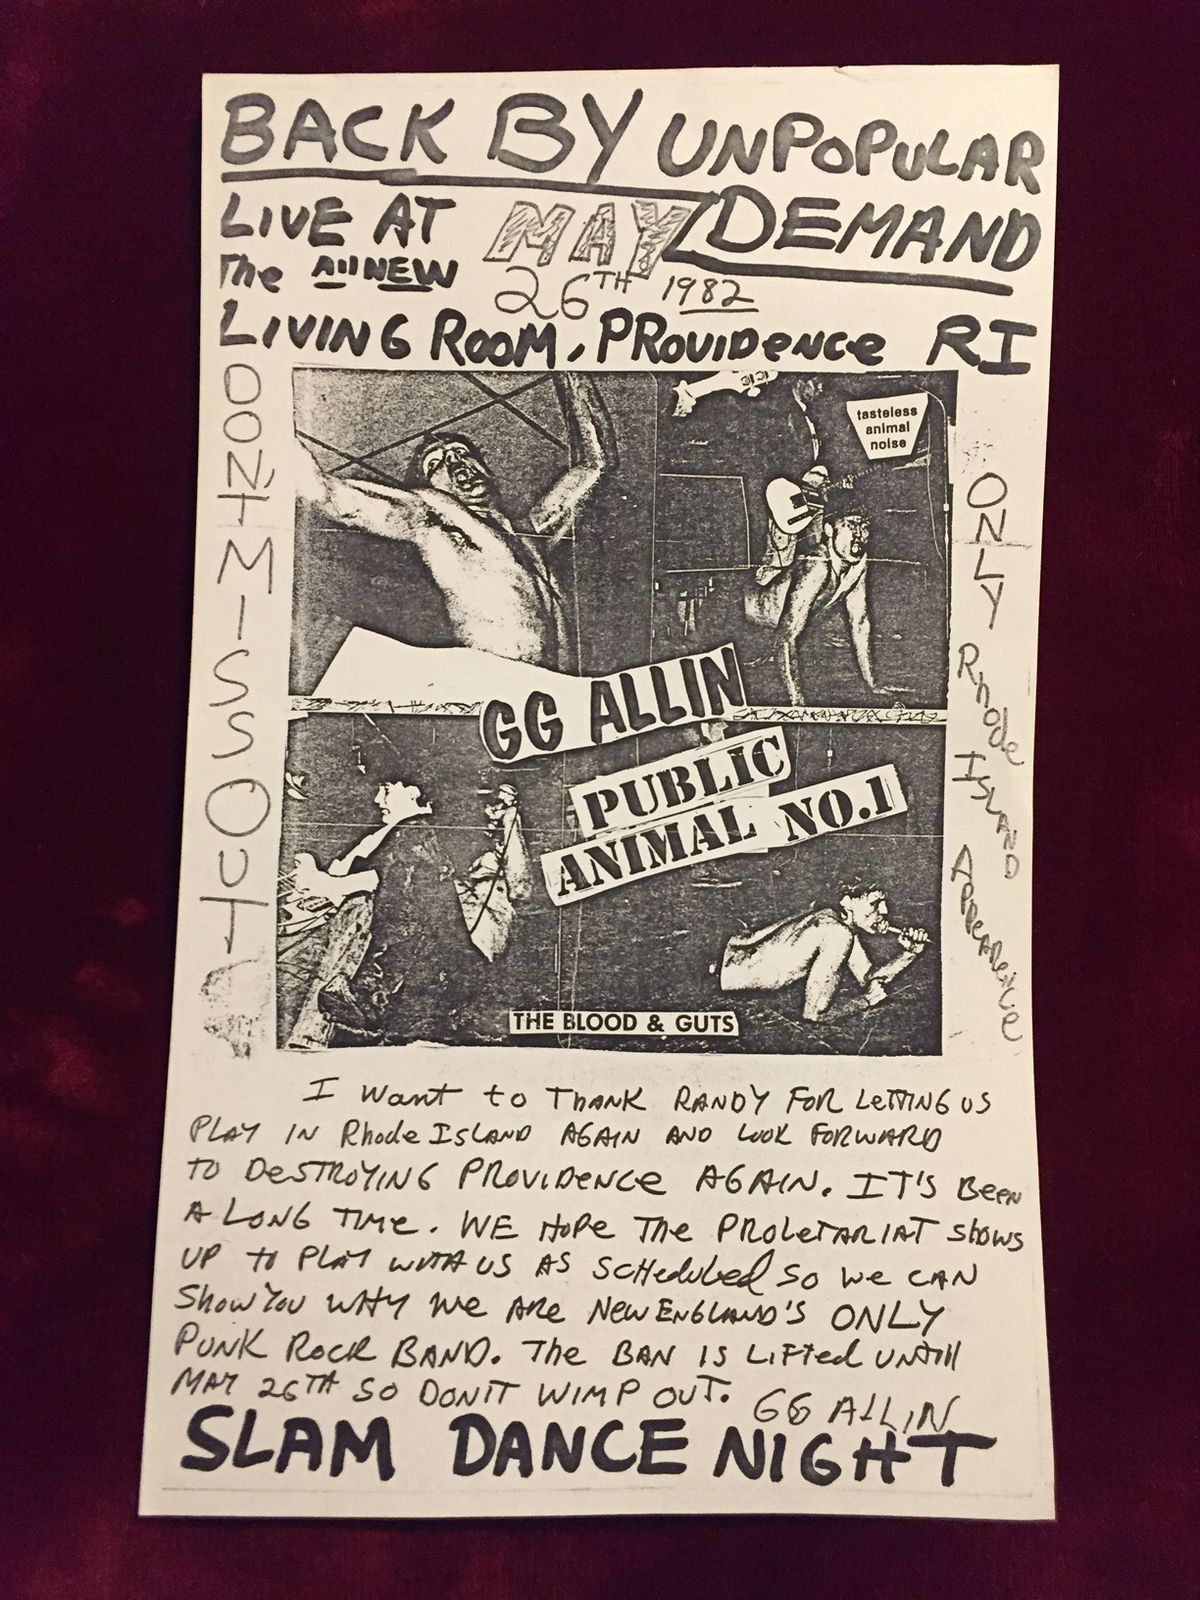 BACK BY UNPOPULAR
DEMAND
LIVE AT
The All NEW
MAY
26TH 1982
LIVING ROOM, PROVIDENCE RI
DONT MISS OUT
tasteless
animal
noise
ONLY Rhode ISLAND APPEARENCE
GG ALLIN
PUBLIC
ANIMAL NO.1
THE BLOOD & GUTS
I Want to THANK RANDY FOR LETTING US
PLAY IN Rhode ISLAND AGAIN AND LOOK FORWARD
TO DESTROYING PROVIDENCE AGAIN. IT'S BEEN
A LONG TIME. WE HOPE THE PROLETARIAT SHOWS
UP TO PLAY WITH US AS SCHEDULED SO WE CAN
SHOW YOU WHY WE ARE NEW ENGLAND'S ONLY
PUNK ROCK BAND. THE BAN IS LIFTED UNTILL
MAY 26TH SO DON'T WIMP OUT. GG ALLIN
SLAM DANCE NIGHT